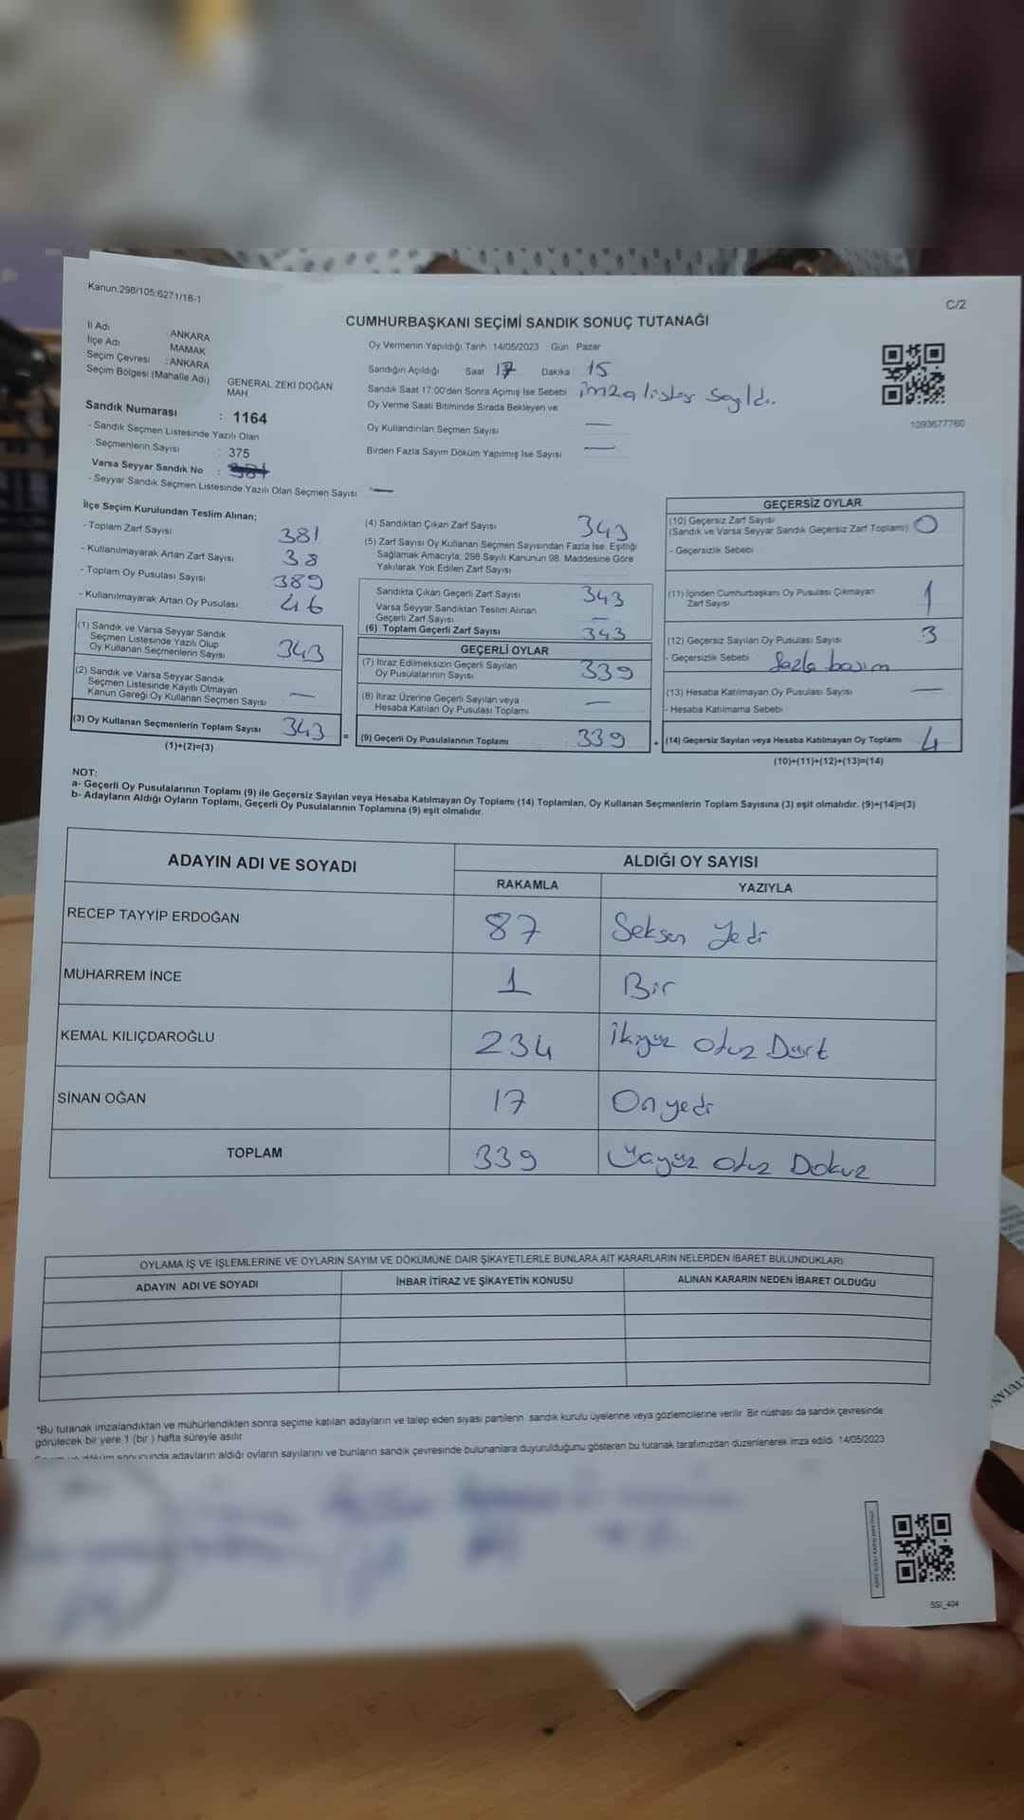 Kanun.298/105;6271/18-1
C/2
CUMHURBAŞKANI SEÇİMİ SANDIK SONUÇ TUTANAĞI
İl Adı ANKARA
İlçe Adı MAMAK
Seçim Çevresi : ANKARA
Seçim Bölgesi (Mahalle Adı) GENERAL ZEKİ DOĞAN MAH
Sandık Numarası : 1164
- Sandık Seçmen Listesinde Yazılı Olan
Seçmenlerin Sayısı : 375
Varsa Seyyar Sandık No :
- Seyyar Sandık Seçmen Listesinde Yazılı Olan Seçmen Sayısı —
Oy Vermenin Yapıldığı Tarih 14/05/2023 Gün Pazar
Sandığın Açıldığı Saat 17 Dakika 15
Sandık Saat 17:00'den Sonra Açımış İse Sebebi imza listesi sayıldı.
Oy Verme Saati Bitiminde Sırada Bekleyen ve
Oy Kullandırılan Seçmen Sayısı —
Birden Fazla Sayım Döküm Yapılmış İse Sayısı —
1093677760
İlçe Seçim Kurulundan Teslim Alınan;
- Toplam Zarf Sayısı 381
- Kullanılmayarak Artan Zarf Sayısı 38
- Toplam Oy Pusulası Sayısı 389
- Kullanılmayarak Artan Oy Pusulası 46
(1) Sandık ve Varsa Seyyar Sandık
Seçmen Listesinde Yazılı Olup
Oy Kullanan Seçmenlerin Sayısı 343
(2) Sandık ve Varsa Seyyar Sandık
Seçmen Listesinde Kayıtlı Olmayan
Kanun Gereği Oy Kullanan Seçmen Sayısı —
(3) Oy Kullanan Seçmenlerin Toplam Sayısı 343
(1)+(2)=(3)
=
(4) Sandıktan Çıkan Zarf Sayısı 343
(5) Zarf Sayısı Oy Kullanan Seçmen Sayısından Fazla İse, Eşitliği
Sağlamak Amacıyla, 298 Sayılı Kanunun 98. Maddesine Göre
Yakılarak Yok Edilen Zarf Sayısı
Sandıkta Çıkan Geçerli Zarf Sayısı 343
Varsa Seyyar Sandıktan Teslim Alınan
Geçerli Zarf Sayısı —
(6) Toplam Geçerli Zarf Sayısı 343
GEÇERLİ OYLAR
(7) İtiraz Edilmeksizin Geçerli Sayılan
Oy Pusulalarının Sayısı 339
(8) İtiraz Üzerine Geçerli Sayılan veya
Hesaba Katılan Oy Pusulası Toplamı —
(9) Geçerli Oy Pusulalarının Toplamı 339
+
GEÇERSİZ OYLAR
(10) Geçersiz Zarf Sayısı
(Sandık ve Varsa Seyyar Sandık Geçersiz Zarf Toplamı) 0
- Geçersizlik Sebebi
(11) İçinden Cumhurbaşkanı Oy Pusulası Çıkmayan
Zarf Sayısı 1
(12) Geçersiz Sayılan Oy Pusulası Sayısı 3
- Geçersizlik Sebebi fazla basım
(13) Hesaba Katılmayan Oy Pusulası Sayısı —
- Hesaba Katılmama Sebebi
(14) Geçersiz Sayılan veya Hesaba Katılmayan Oy Toplamı 4
(10)+(11)+(12)+(13)=(14)
NOT:
a- Geçerli Oy Pusulalarının Toplamı (9) ile Geçersiz Sayılan veya Hesaba Katılmayan Oy Toplamı (14) Toplamları, Oy Kullanan Seçmenlerin Toplam Sayısına (3) eşit olmalıdır. (9)+(14)=(3)
b- Adayların Aldığı Oyların Toplamı, Geçerli Oy Pusulalarının Toplamına (9) eşit olmalıdır.
ADAYIN ADI VE SOYADI ALDIĞI OY SAYISI
RAKAMLA YAZIYLA
RECEP TAYYİP ERDOĞAN 87 Seksen yedi
MUHARREM İNCE 1 Bir
KEMAL KILIÇDAROĞLU 234 İkiyüz Otuz Dört
SİNAN OĞAN 17 Onyedi
TOPLAM 339 Üçyüz Otuz Dokuz
OYLAMA İŞ VE İŞLEMLERİNE VE OYLARIN SAYIM VE DÖKÜMÜNE DAİR ŞİKAYETLERLE BUNLARA AİT KARARLARIN NELERDEN İBARET BULUNDUKLARI
ADAYIN ADI VE SOYADI İHBAR İTİRAZ VE ŞİKAYETİN KONUSU ALINAN KARARIN NEDEN İBARET OLDUĞU
*Bu tutanak imzalandıktan ve mühürlendikten sonra seçime katılan adayların ve talep eden siyasi partilerin sandık kurulu üyelerine veya gözlemcilerine verilir. Bir nüshası da sandık çevresinde
görülecek bir yere 1 (bir ) hafta süreyle asılır.
sonucunda adayların aldığı oyların sayılarını ve bunların sandık çevresinde bulunanlara duyurulduğunu gösteren bu tutanak tarafımızdan düzenlenerek imza edildi. 14/05/2023
SSI_404